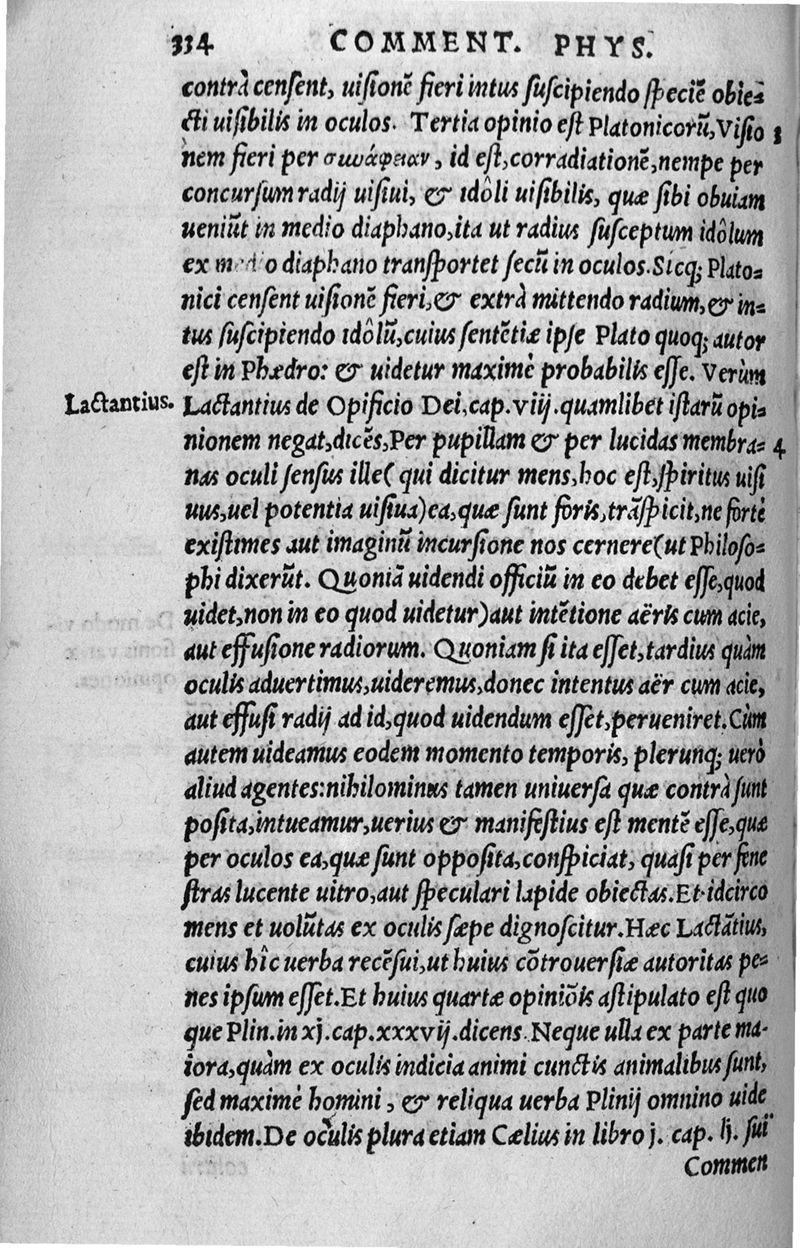 334 COMMENT. PHYS.
contrà censent, uisionẽ fieri intus suscipiendo speciẽ obie-
cti uisibilis in oculos. Tertia opinio est Platonicorũ, Visio 3
nem fieri per , id est, corradiationẽ, nempe per
concursum radij uisiui, & idôli uisibilis, quæ sibi obuiam
ueniũt in medio diaphano, ita ut radius susceptum idôlum
ex medio diaphano transportet secũ in oculos. Sicq; Plato-
nici censent uisionẽ fieri, & extrà mittendo radium, & in-
tus suscipiendo idôlũ, cuius sentẽtiæ ipse Plato quoq; autor
est in Phædro: & uidetur maximè probabilis esse. Verùm
Lactantius. Lactantius de Opificio Dei, cap. viij. quamlibet istarũ opi-
nionem negat, dicẽs, Per pupillam & per lucidas membra- 4
nas oculi sensus ille (qui dicitur mens, hoc est, spiritus uisi
uus, uel potentia uisiua) ea, quæ sunt foris, trãspicit, ne fortè
existimes aut imaginũ incursione nos cernere (ut Philoso-
phi dixerũt. Quoniã uidendi officiũ in eo debet esse, quod
uidet, non in eo quod uidetur) aut intẽtione aëris cum acie,
aut effusione radiorum. Quoniam si ita esset, tardius quàm
oculis aduertimus, uideremus, donec intentus aër cum acie,
aut effusi radij ad id, quod uidendum esset, perueniret. Cùm
autem uideamus eodem momento temporis, plerunq; uerò
aliud agentes: nihilominus tamen uniuersa quæ contrà sunt
posita, intueamur, uerius & manifestius est mentẽ esse, quæ
per oculos ea, quæ sunt opposita, conspiciat, quasi per fene
stras lucente uitro, aut speculari lapide obiectas. Et idcirco
mens et uolũtas ex oculis sæpe dignoscitur. Hæc Lactãtius,
cuius hîc uerba recẽsui, ut huius cõtrouersiæ autoritas pe-
nes ipsum esset. Et huius quartæ opiniõis astipulato est quo
que Plin. in xj. cap. xxxvij. dicens. Neque ulla ex parte ma-
iora, quàm ex oculis indicia animi cunctis animalibus sunt,
sed maximè homini, & reliqua uerba Plinij omnino uide
ibidem. De oculis plura etiam Cælius in libro j. cap. ij. sui
Commen